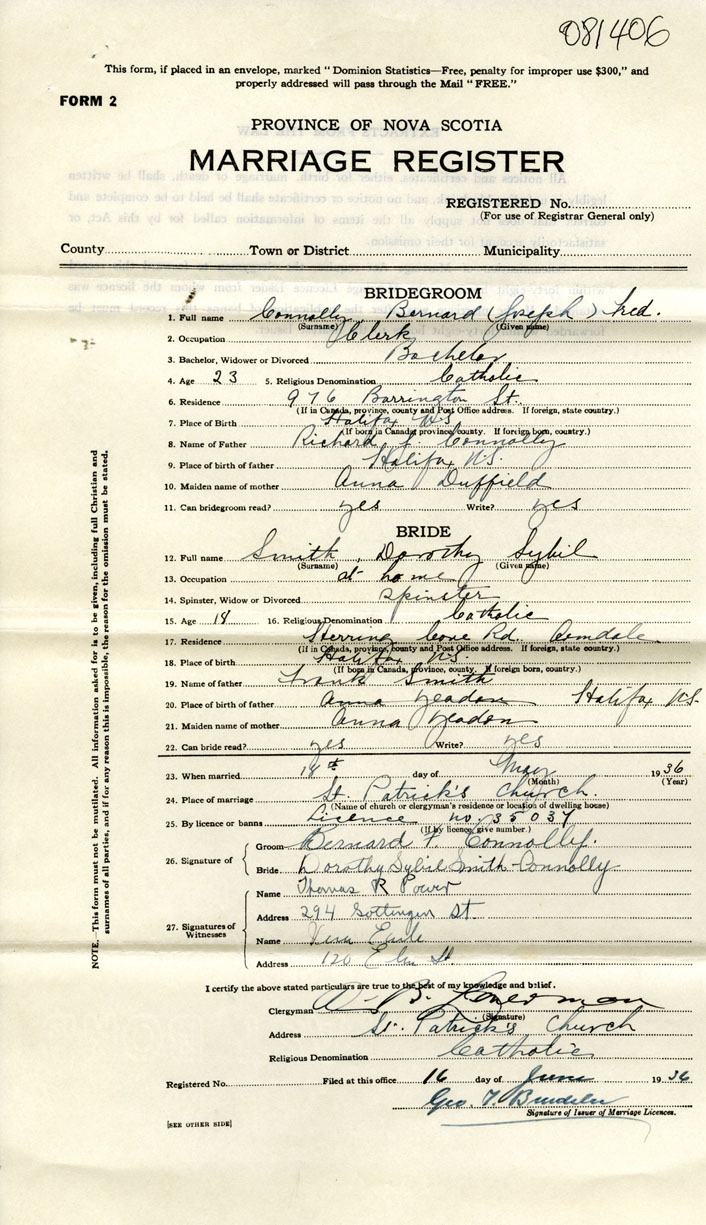 081406
This form, if placed in an envelope, marked "Dominion Statistics—Free, penalty for improper use $300," and
properly addressed will pass through the Mail "FREE."
FORM 2
PROVINCE OF NOVA SCOTIA
MARRIAGE REGISTER
REGISTERED No.
(For use of Registrar General only)
County Town or District Municipality
BRIDEGROOM
1. Full name Connolly, Bernard (Joseph) Fred.
(Surname) (Given name)
2. Occupation Clerk
3. Bachelor, Widower or Divorced Bachelor
4. Age 23 5. Religious Denomination Catholic
6. Residence 976 Barrington St.
(If in Canada, province, county and Post Office address. If foreign, state country.)
7. Place of Birth Halifax N.S.
(If born in Canada, province, county. If foreign born, country.)
8. Name of Father Richard J. Connolly
9. Place of birth of father Halifax N.S.
10. Maiden name of mother Anna Duffield
11. Can bridegroom read? yes Write? yes
BRIDE
12. Full name Smith, Dorothy Sybil
(Surname) (Given name)
13. Occupation at home
14. Spinster, Widow or Divorced Spinster
15. Age 18 16. Religious Denomination Catholic
17. Residence Herring Cove Rd. Armdale
(If in Canada, province, county and Post Office address. If foreign, state country.)
18. Place of birth Halifax N.S.
(If born in Canada, province, county. If foreign born, country.)
19. Name of father Frank Smith
20. Place of birth of father Anna Yeadon Halifax N.S.
21. Maiden name of mother Anna Yeadon
22. Can bride read? yes Write? yes
23. When married 18th day of May 1936
(Month) (Year)
24. Place of marriage St. Patrick's Church.
(Name of church or clergyman's residence or location of dwelling house)
25. By licence or banns Licence no. 35037
(If by licence, give number.)
26. Signature of
Groom Bernard F. Connolly.
Bride Dorothy Sybil Smith-Connolly
27. Signatures of Witnesses
Name Thomas R Power
Address 294 Gottingen St
Name
Address 120 Elm St
I certify the above stated particulars are true to the best of my knowledge and belief.
Clergyman W. B.
(Signature)
Address St. Patrick's Church
Religious Denomination Catholic
Registered No. Filed at this office 16 day of June 1936
Geo. T.
Signature of Issuer of Marriage Licences.
[SEE OTHER SIDE]
NOTE.—This form must not be mutilated. All information asked for is to be given, including full Christian and
surnames of all parties, and if for any reason this is impossible, the reason for the omission must be stated.